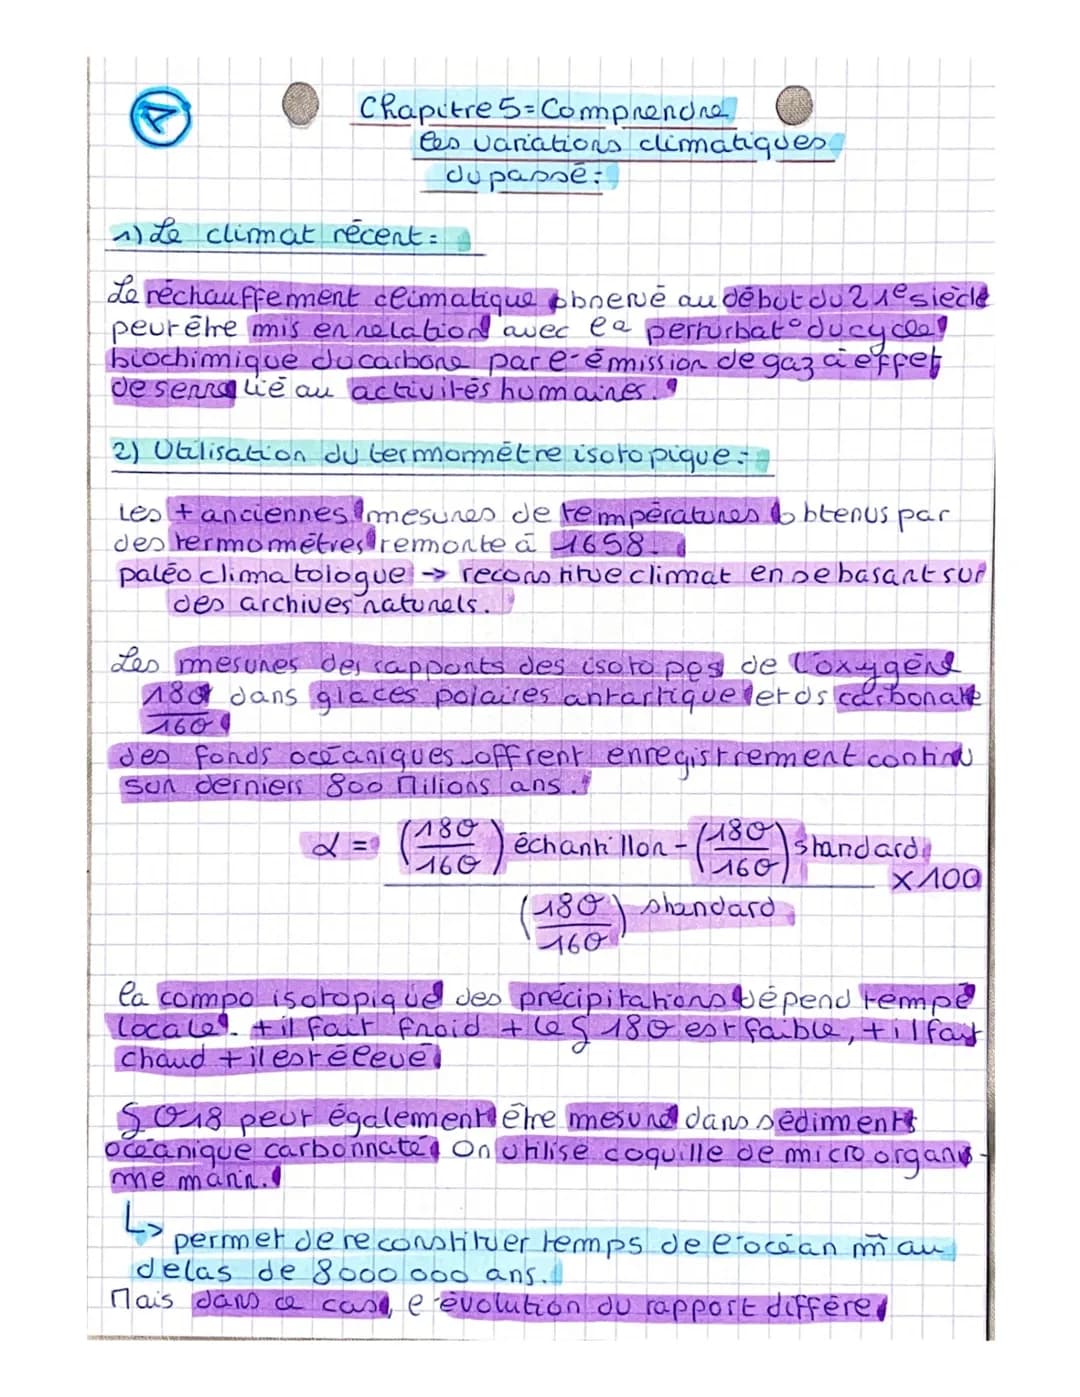 Chapitre 5 = Comprendre
les variations climatiques
du passé :
1) Le climat récent :
Le réchauffement climatique observé au début du 21e siècle
peut être mis en relation avec la perturbat° du cycle
biochimique du carbone par e-émission de gaz à effet
de serre lié au activités humaines.
2) Utilisation du termomètre isotopique :
Les + anciennes mesures de températures obtenus par
des termomètres remonte à 1658.
paléoclimatologue → reconstitue climat en se basant sur
des archives naturels.
Les mesures des rapports des isotopes de l'oxygène
18O dans glaces polaires antartique et ds carbonate
16O
des fonds océaniques offrent enregistrement continu
sur derniers 800 Milions ans.
α = (18O/16O) échantillon - (18O/16O) standard
x100
(18O/16O) standard
la compo isotopique des précipitations dépend tempé
locale. + il fait froid + le δ 18O est faible, + il fait
chaud + il est élevé
δO18 peut également être mesuré dans sédiments
océanique carbonnaté. On utilise coquille de micro organis-
me marin.
↳ permet de reconstituer temps de l'océan m̄ au
delas de 8000 000 ans.
Mais dans ce cas, e-évolution du rapport diffère